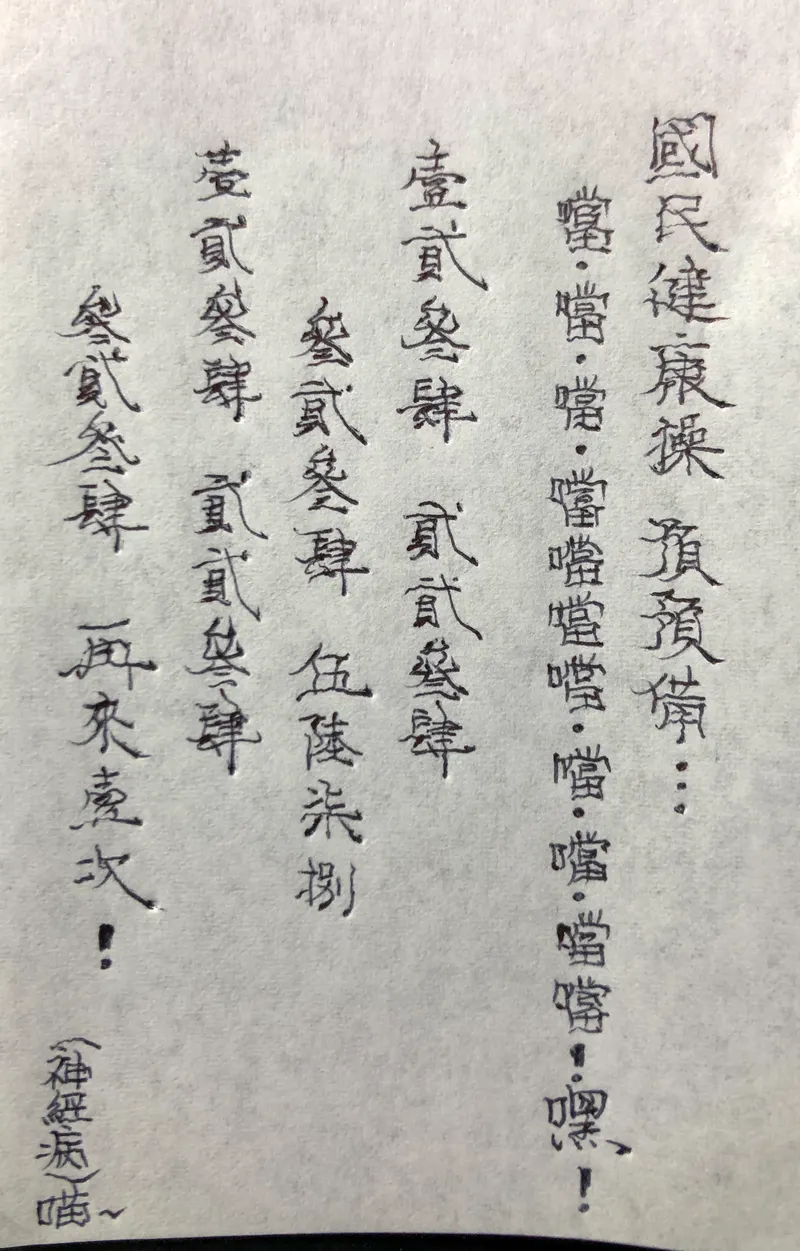 國民健康操 預預備…
噹·噹·噹·噹噹噹噹·噹·噹·噹噹!嘿!
壹貳叁肆 貳貳叁肆
叁貳叁肆 伍陸柒捌
壹貳叁肆 貳貳叁肆
叁貳叁肆 再來壹次!
(神經病)喵~